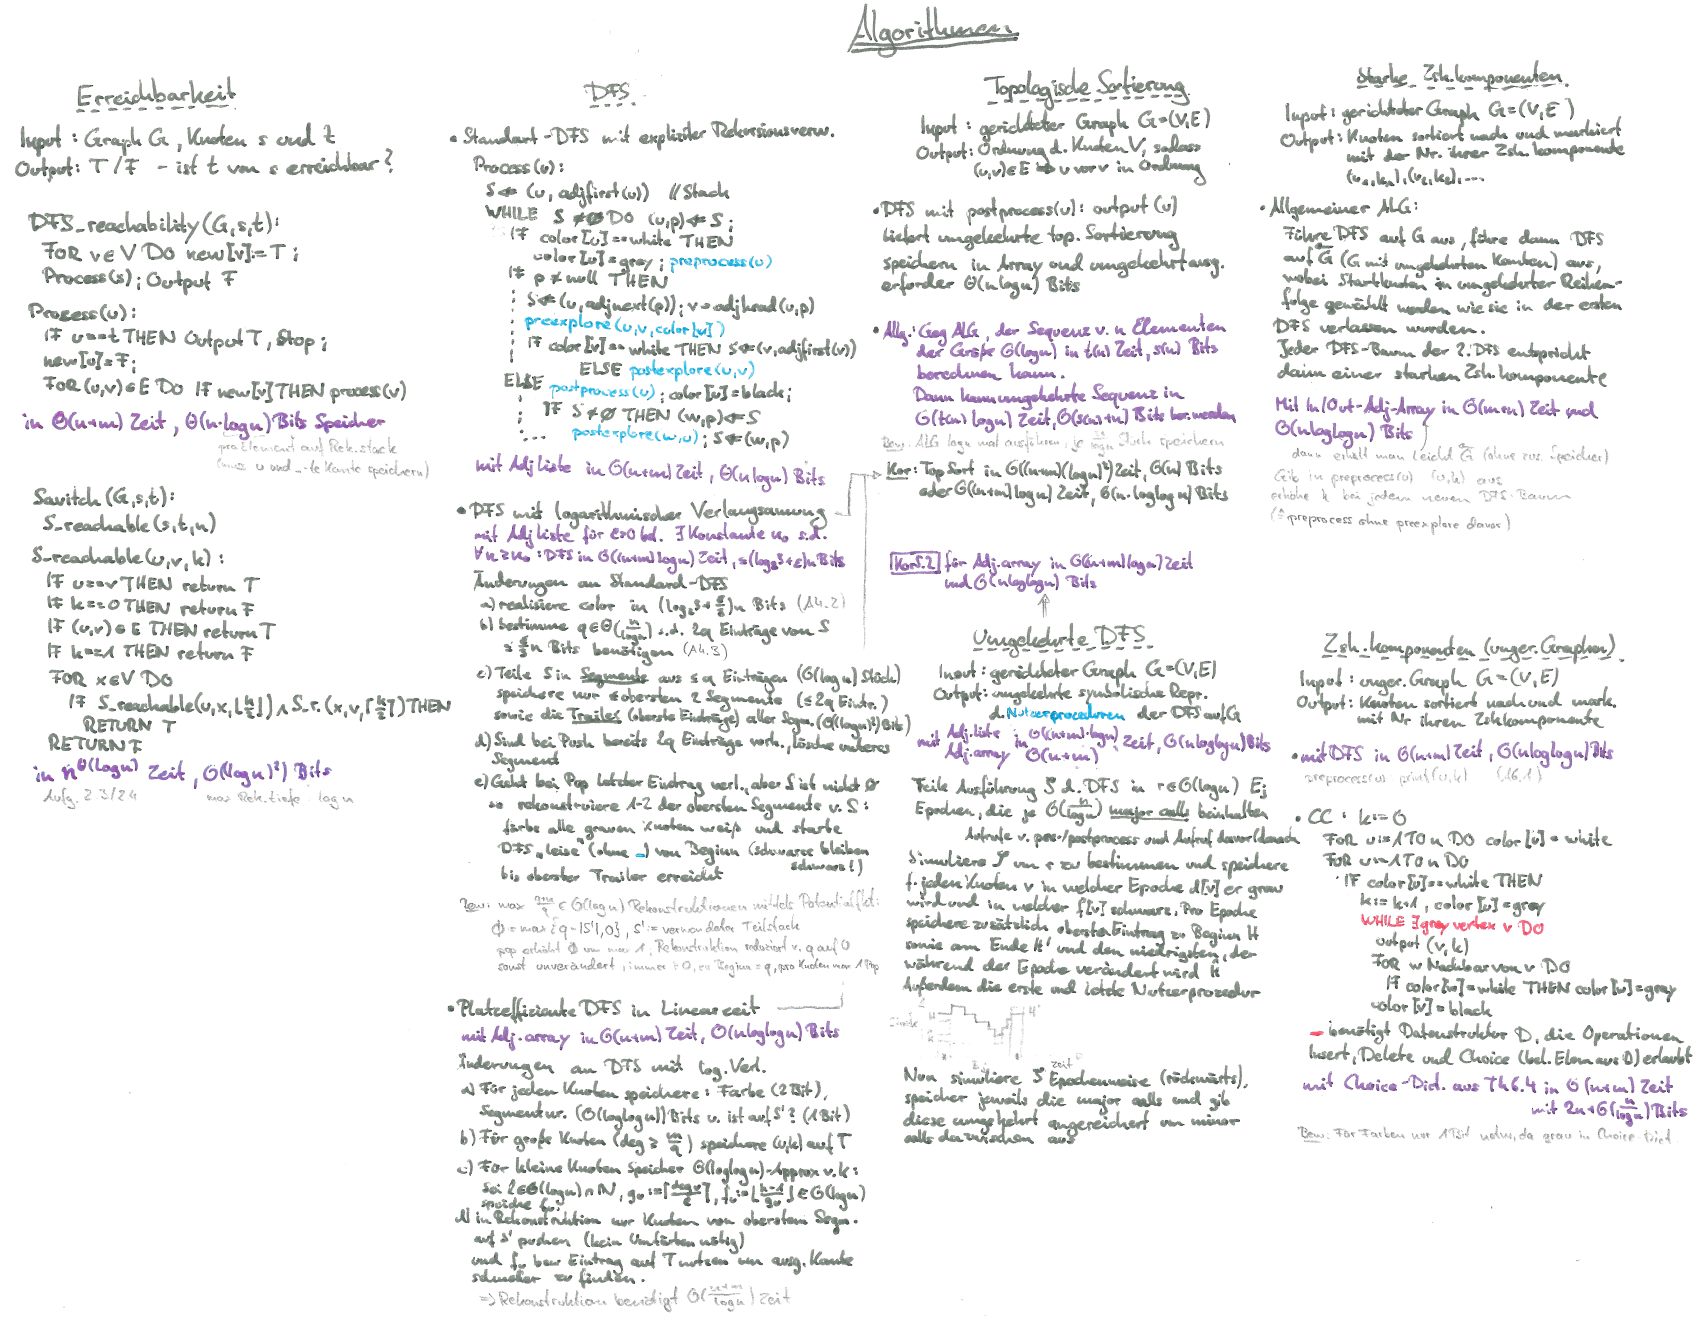 Algorithmen
Erreichbarkeit
Input: Graph G, Knoten s und t
Output: T/F - ist t von s erreichbar?
DFS_reachability(G,s,t):
FOR v∈V DO new[v]:=T;
Process(s); Output F
Process(u):
IF u==t THEN Output T, Stop;
new[u]=F;
FOR (u,v)∈E DO IF new[v] THEN process(v)
in Θ(n+m) Zeit, Θ(n·logn) Bits Speicher
pro Element auf Rek.stack
(muss u und _-te Kante speichern)
Savitch(G,s,t):
S_reachable(s,t,n)
S_reachable(u,v,k):
IF u==v THEN return T
IF k==0 THEN return F
IF (u,v)∈E THEN return T
IF k==1 THEN return F
FOR x∈V DO
IF S_reachable(u,x,⌊k/2⌋) ∧ S_r.(x,v,⌈k/2⌉) THEN
RETURN T
RETURN F
in n^O(logn) Zeit, O((logn)²) Bits
Aufg. 2.3/2.4 max Rek.tiefe: logn
DFS
• Standart-DFS mit expliziter Rekursionsverw.
Process(u):
S⇐(u, adjfirst(u)) //Stack
WHILE S≠∅ DO (u,p)⇐S;
IF color[u]==white THEN
color[u]=gray; preprocess(u)
IF p≠null THEN
S⇐(u,adjnext(p)); v=adjhead(u,p)
preexplore(u,v,color[v])
IF color[v]==white THEN S⇐(v,adjfirst(v))
ELSE postexplore(u,v)
ELSE postprocess(u); color[u]=black;
IF S≠∅ THEN (w,p)⇐S
postexplore(w,u); S⇐(w,p)
mit Adj.liste in Θ(n+m) Zeit, Θ(nlogn) Bits
• DFS mit logarithmischer Verlangsamung
mit Adj.liste für ε>0 bel. ∃ Konstante n₀ s.d.
∀n≥n₀: DFS in O((n+m)logn) Zeit, ≤(log₂3+ε)n Bits
Änderungen an Standard-DFS
a) realisiere color in (log₂3+ε/2)n Bits (A4.2)
b) bestimme q∈Θ(n/logn) s.d. 2q Einträge von S
≤ ε/2 n Bits benötigen (A4.3)
c) Teile S in Segmente aus ≤q Einträgen (O(logn) Stück)
speichere nur ≤ obersten 2 Segmente (≤2q Eintr.)
sowie die Trailer (oberste Einträge) aller Segm. (O((logn)²) Bits)
d) Sind bei Push bereits 2q Einträge vorh., lösche unteres
Segment
e) Geht bei Pop letzter Eintrag verl., aber S ist nicht ∅
⇝ rekonstruiere 1-2 der obersten Segmente v. S:
färbe alle grauen Knoten weiß und starte
DFS „leise" (ohne _) von Beginn (schwarze bleiben
schwarz!)
bis oberster Trailer erreicht
Bew: max ∈O(logn) Rekonstruktionen mittels Potentialfkt:
Φ=max{q-|S'|,0}, S':=vorhandener Teilstack
pop erhöht Φ um max 1, Rekonstruktion reduziert v. q auf 0
sonst unverändert, immer ≥0, zu Beginn =q, pro Knoten max 1 Pop
• Platzeffiziente DFS in Linearzeit
mit Adj.array in Θ(n+m) Zeit, O(nloglogn) Bits
Änderungen an DFS mit log. Verl.
a) Für jeden Knoten speichere: Farbe (2Bit),
Segmentnr. (O(loglogn)) Bits u. ist auf S'? (1Bit)
b) Für große Knoten (deg ≥ m/q) speichere (u,k) auf T
c) Für kleine Knoten speicher O(loglogn)-Approx v. k:
Sei l∈Θ(logn)∩ℕ, gᵤ:=⌈deg u/l⌉, fᵤ:=⌊k-1/gᵤ⌋∈O(logn)
speichere fᵤ.
d) in Rekonstruktion nur Knoten von oberstem Segm.
auf S' pushen (kein Umfärben nötig)
und fᵤ bzw Eintrag auf T nutzen um ausg. Kante
schneller zu finden.
=> Rekonstruktion benötigt O(n+m/logn) Zeit
Topologische Sortierung
Input: gerichteter Graph G=(V,E)
Output: Ordnung d. Knoten V, sodass
(u,v)∈E ⇒ u vor v in Ordnung
• DFS mit postprocess(u): output(u)
liefert umgekehrte top. Sortierung
speichern in Array und umgekehrt ausg.
erforder Θ(nlogn) Bits
• Allg.: Geg ALG, der Sequenz v. n Elementen
der Größe O(logn) in t(n) Zeit, s(n) Bits
berechnen kann.
Dann kann umgekehrte Sequenz in
O(t(n)logn) Zeit, O(s(n)+n) Bits ber. werden
Bew: ALG logn mal ausführen, je n/logn Stück speichern
Kor: TopSort in O((n+m)(logn)²) Zeit, O(n) Bits
oder O((n+m)logn) Zeit, O(n·loglogn) Bits
Kor5.2 für Adj.array in O((n+m)logn) Zeit
und O(nloglogn) Bits
Umgekehrte DFS
Input: gerichteter Graph G=(V,E)
Output: umgekehrte symbolische Repr.
d. Nutzerprozeduren der DFS auf G
mit Adj.liste in O((n+m)·logn) Zeit, O(nloglogn) Bits
Adj.array O(n+m)
Teile Ausführung ζ d. DFS in r∈O(logn) Ej
Epochen, die je O(n/logn) major calls beinhalten
Aufrufe v. pre-/postprocess und Aufruf davor/danach
Simuliere ζ um r zu bestimmen und speichere
f. jeden Knoten v in welcher Epoche d[v] er grau
wird und in welcher f[v] schwarz. Pro Epoche
speichere zusätzlich obersten Eintrag zu Beginn H
sowie am Ende H' und den niedrigsten, der
während der Epoche verändert wird Ĥ
Außerdem die erste und letzte Nutzerprozedur
Zeit
Nun simuliere ζ Epochenweise (rückwärts),
speicher jeweils die major calls und gib
diese umgekehrt angereichert um minor
calls dazwischen aus
Starke Zsh.komponenten
Input: gerichteter Graph G=(V,E)
Output: Knoten sortiert nach und markiert
mit der Nr. ihrer Zsh.komponente
(u₁,k₁),(u₂,k₂),...
• Allgemeiner ALG:
Führe DFS auf G aus, führe dann DFS
auf G̃ (G mit umgekehrten Kanten) aus,
wobei Startknoten in umgekehrter Reihen-
folge gewählt werden wie sie in der ersten
DFS verlassen wurden.
Jeder DFS-Baum der 2. DFS entspricht
dann einer starken Zsh.komponente
Mit In/Out-Adj-Array in O(m+n) Zeit und
O(nloglogn) Bits
dann erhält man leicht G̃ (ohne zus. Speicher)
Gib in preprocess(u) (u,k) aus
erhöhe k bei jedem neuen DFS-Baum
(≙ preprocess ohne preexplore davor)
Zsh.komponenten (unger.Graphen)
Input: unger. Graph G=(V,E)
Output: Knoten sortiert nach und mark.
mit Nr ihrer Zshkomponente
• mit DFS in O(n+m) Zeit, O(nloglogn) Bits
preprocess(u): print(u,k) (A6.1)
• CC: k:=0
FOR u:=1 TO n DO color[u]=white
FOR u:=1 TO n DO
IF color[u]==white THEN
k:=k+1, color[u]=gray
WHILE ∃ gray vertex v DO
output (v,k)
FOR w Nachbar von v DO
IF color[w]=white THEN color[w]=gray
color[v]=black
– benötigt Datenstruktur D, die Operationen
Insert, Delete und Choice (bel. Elem aus D) erlaubt
mit Choice-Dict. aus Th6.4 in O(n+m) Zeit
mit 2n+O(n/logn) Bits
Bew: Für Farben nur 1 Bit nötig, da grau in Choice-Dict